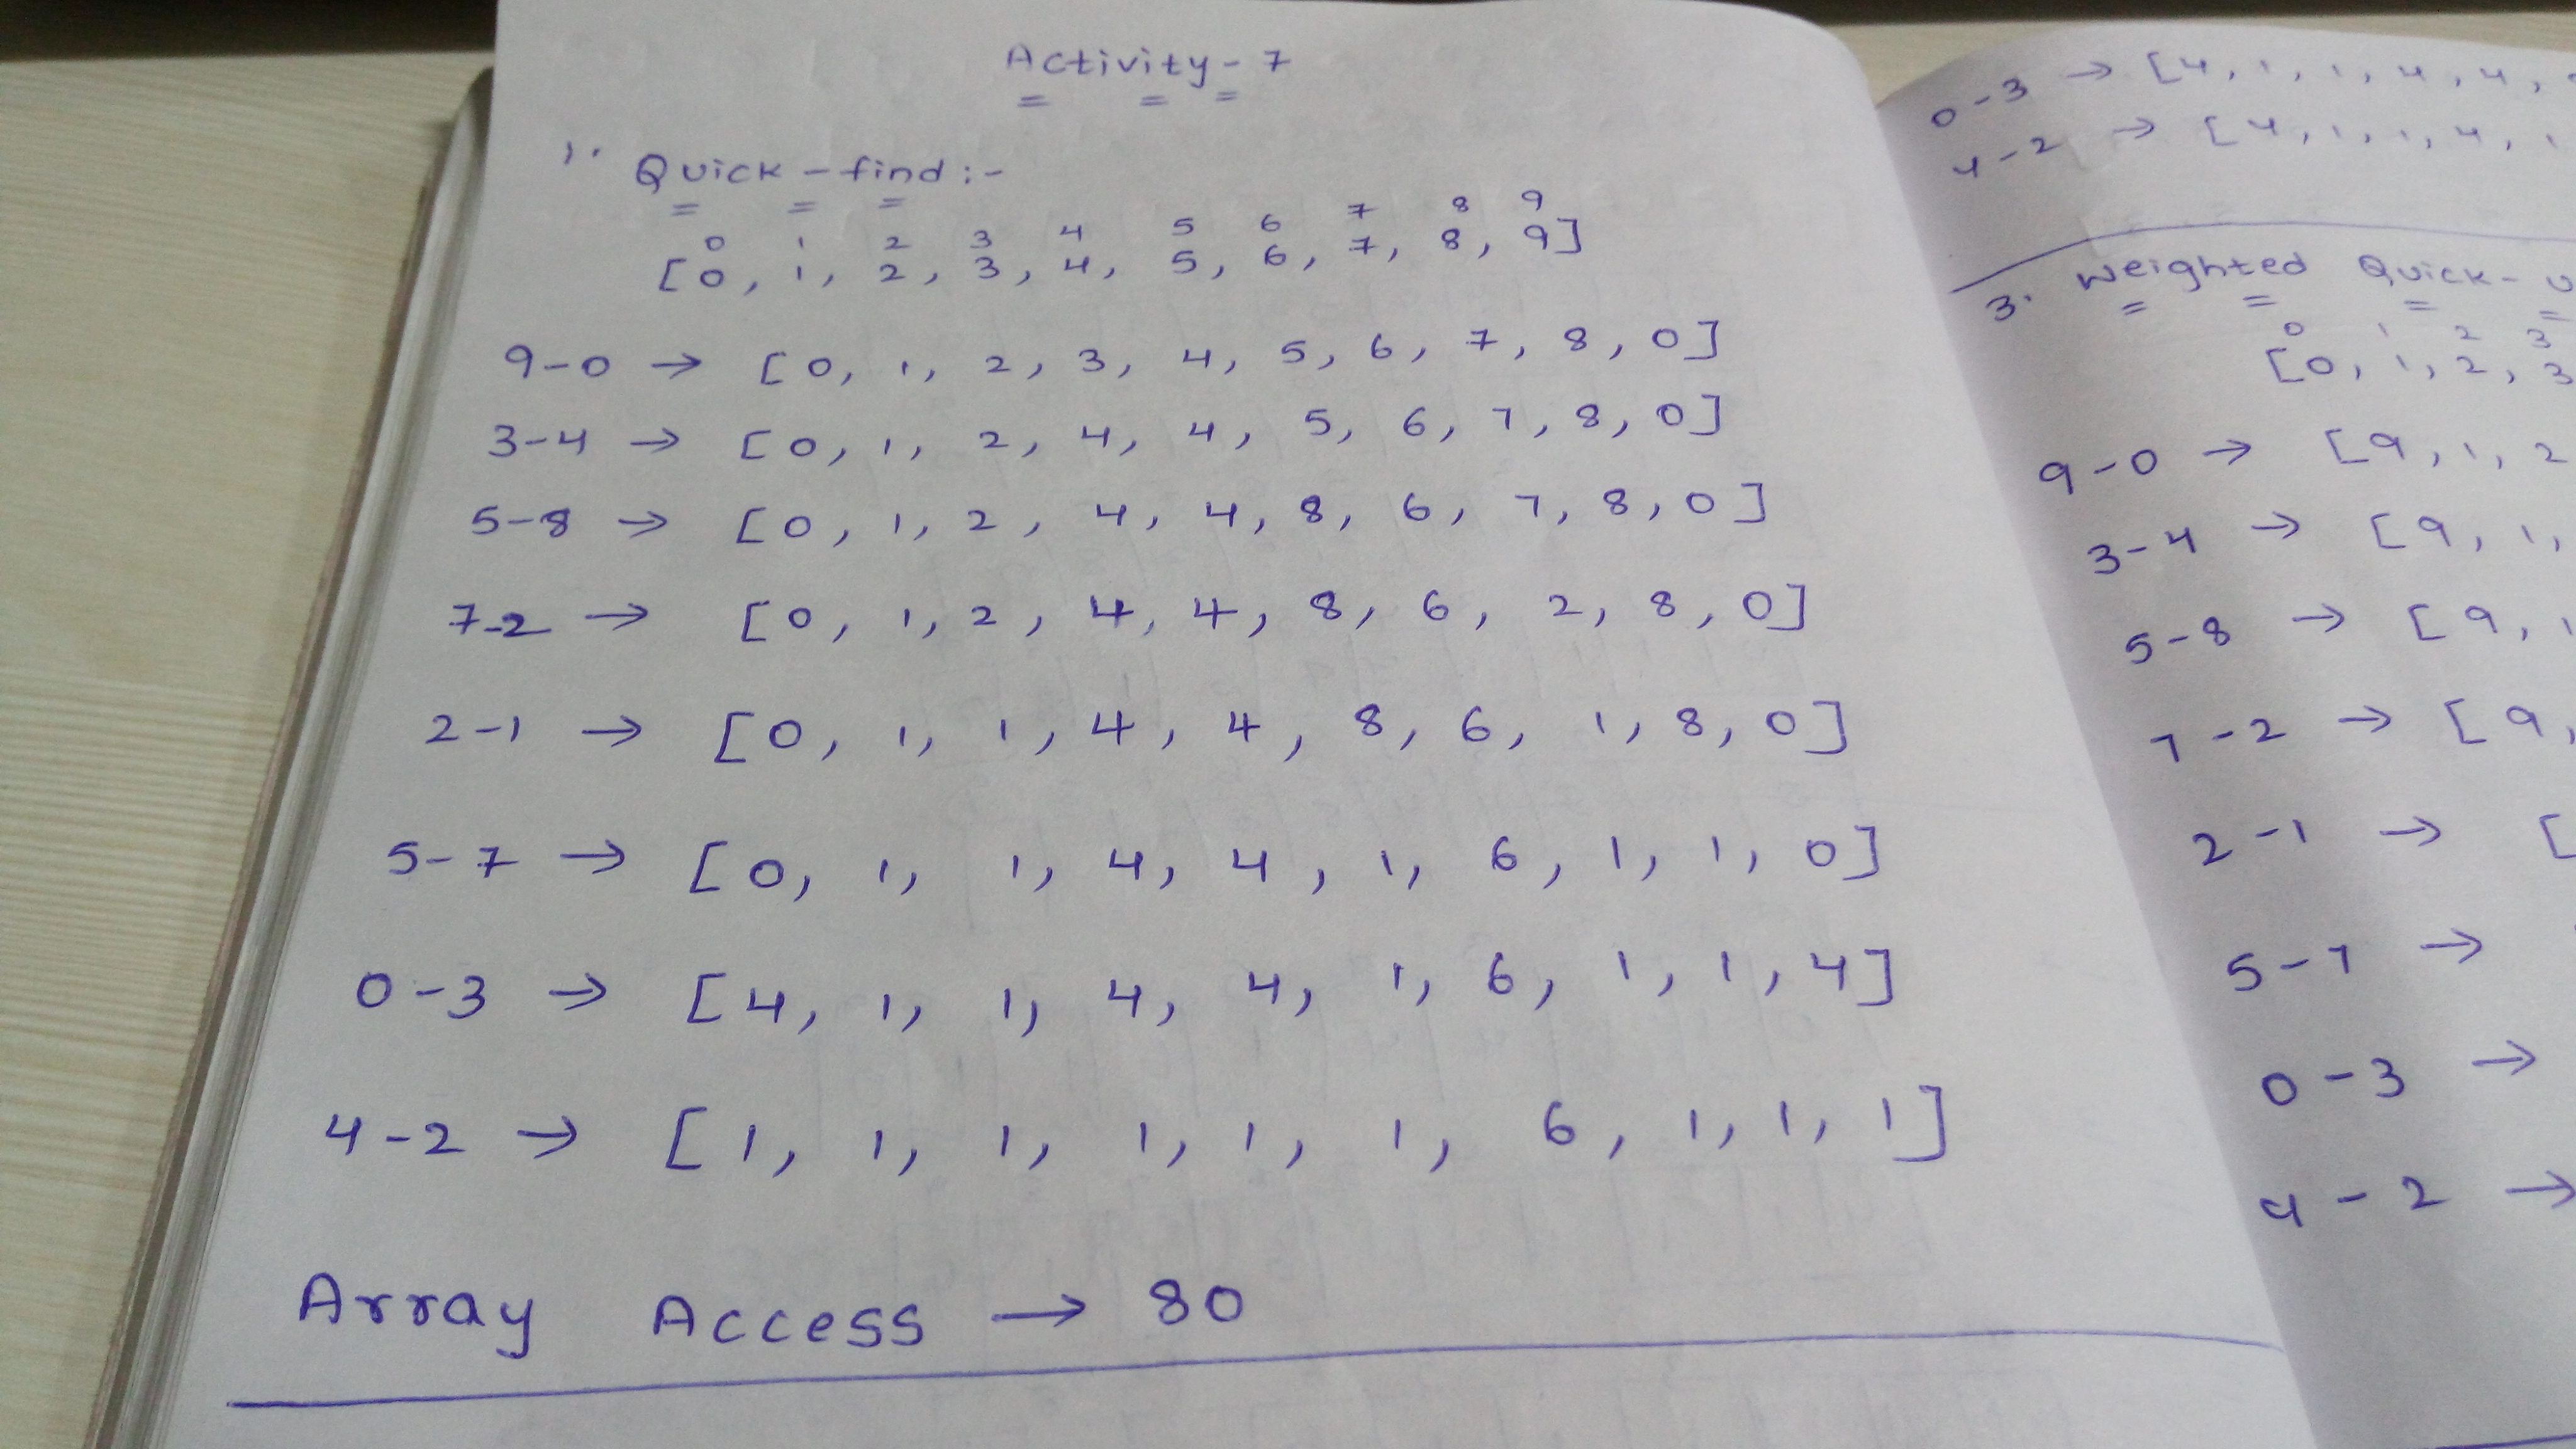 Activity-7
1. Quick-find:-
0 1 2 3 4 5 6 7 8 9
[0, 1, 2, 3, 4, 5, 6, 7, 8, 9]
9-0 → [0, 1, 2, 3, 4, 5, 6, 7, 8, 0]
3-4 → [0, 1, 2, 4, 4, 5, 6, 7, 8, 0]
5-8 → [0, 1, 2, 4, 4, 8, 6, 7, 8, 0]
7-2 → [0, 1, 2, 4, 4, 8, 6, 2, 8, 0]
2-1 → [0, 1, 1, 4, 4, 8, 6, 1, 8, 0]
5-7 → [0, 1, 1, 4, 4, 1, 6, 1, 1, 0]
0-3 → [4, 1, 1, 4, 4, 1, 6, 1, 1, 4]
4-2 → [1, 1, 1, 1, 1, 1, 6, 1, 1, 1]
Array Access → 80
0-3 → [4, 1, 1, 4, 4,
4-2 → [4, 1, 1, 4, 1
3. Weighted Quick-
0 1 2 3
[0, 1, 2, 3
9-0 → [9, 1, 2
3-4 → [9, 1,
5-8 → [9, 1
7-2 → [9,
2-1 → [
5-7 →
0-3 →
4-2 →